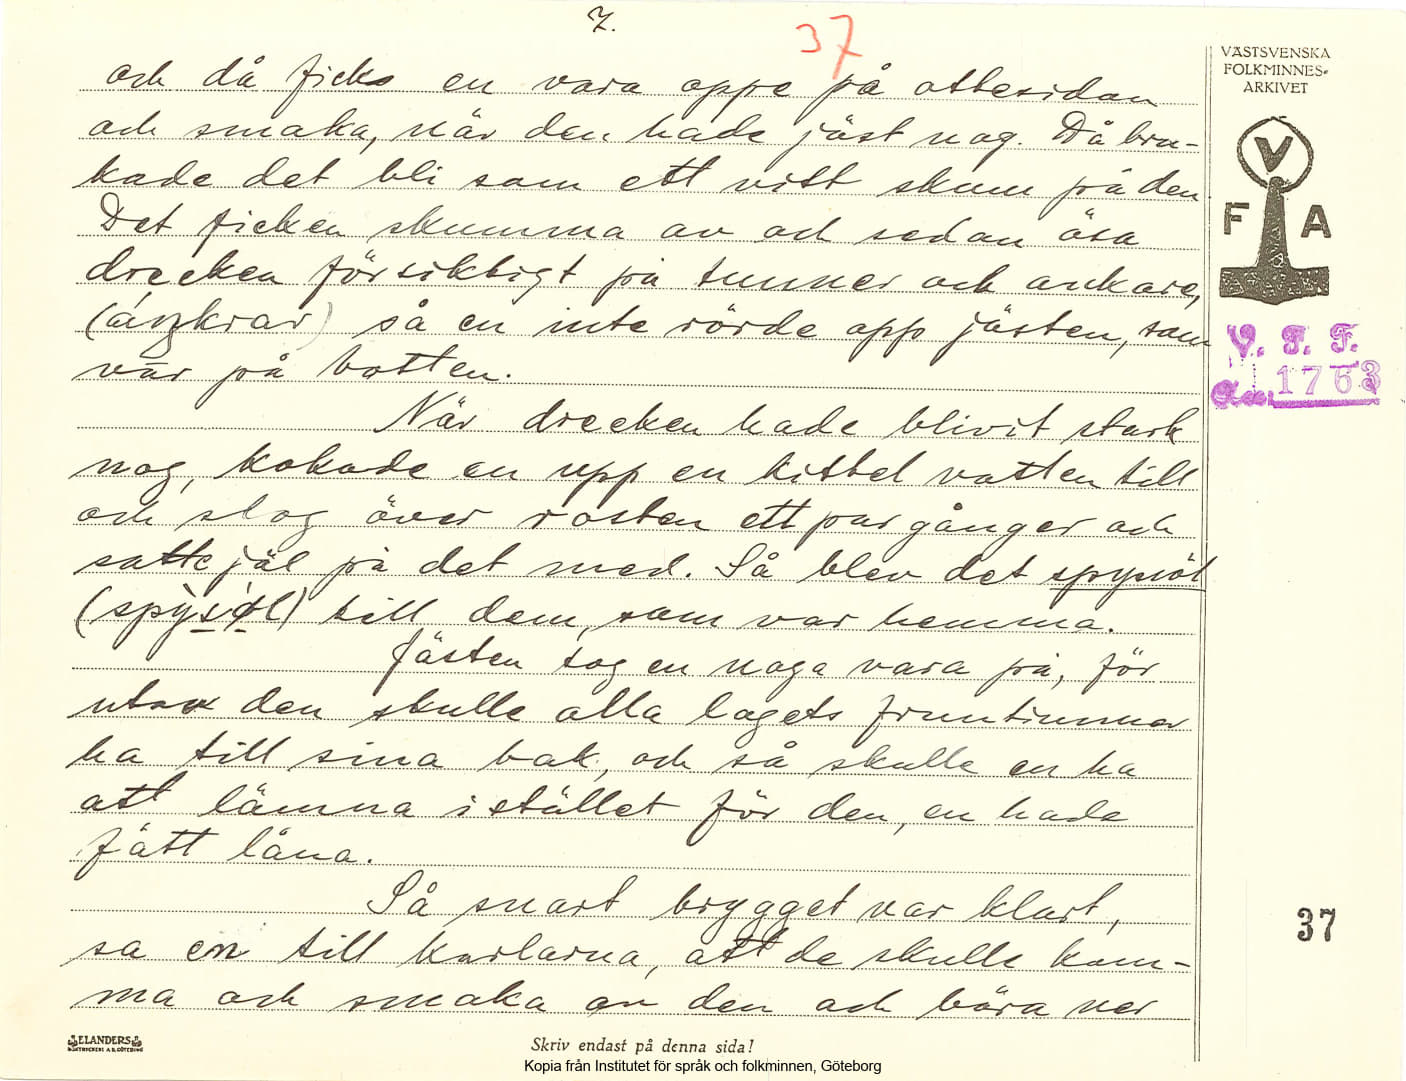 7.
37
och då ficks en vara oppe på attesidan
och smaka, när den hade jäst nog. Då bru-
kade det bli som ett vitt skum på den.
Det ficken skumma av och sedan ösa
drecken försiktigt på tunner och ankare,
(áŋkrar) så en inte rörde opp jästen, som
var på botten.
När drecken hade blivit stark
nog, kokade en upp en kittel vatten till
och slog över rosten ett par gånger och
satte jäl på det med. Så blev det spysöl
(spysøl) till dem, som var hemma.
Jästen tog en noga vara på, för
utav den skulle alla lagets fruntimmer
ha till sina bak, och så skulle en ha
att lämna i stället för den, en hade
fått låna.
Så snart brygget var klart,
sa en till karlarna, att de skulle kom-
ma och smaka on den och bära ner
VÄSTSVENSKA
FOLKMINNES-
ARKIVET
V
F A
V. F. F.
1763
37
ELANDERS
Skriv endast på denna sida!
Kopia från Institutet för språk och folkminnen, Göteborg